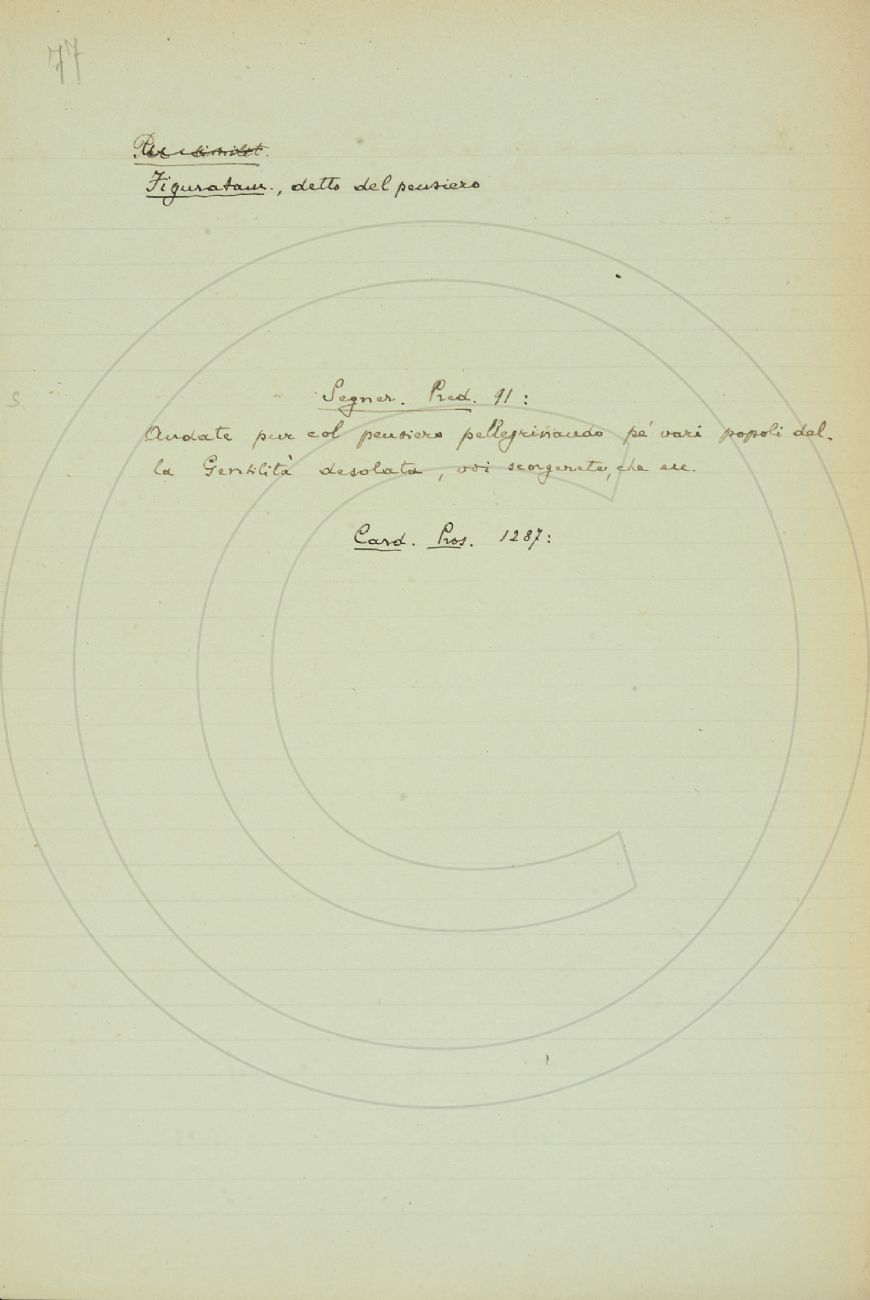 77
Per similit.
Figuratam., detto del pensiero
S.
Segner. Pred. 91:
Andate pur col pensiero pellegrinando pe' vari popoli del-
la Gentilità desolata, voi scorgerete, che ecc.
Card. Pros. 1287: